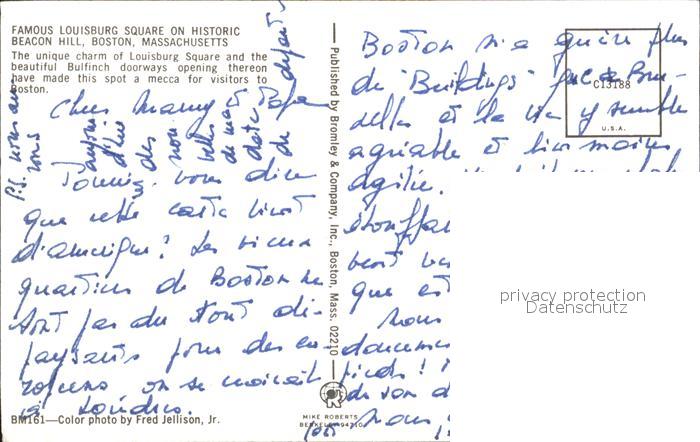 FAMOUS LOUISBURG SQUARE ON HISTORIC
BEACON HILL, BOSTON, MASSACHUSETTS
The unique charm of Louisburg Square and the
beautiful Bulfinch doorways opening thereon
have made this spot a mecca for visitors to
Boston.
Chers Mamy Papa
vous dire
que cette carte vient
d'amérique! Les vieux
quartiers de Boston ne
sont pas du tout dé-
paysants pour des eu-
ropéens on se croirait
à Londres.
BM161—Color photo by Fred Jellison, Jr.
P.S. nous
vous
des
de
Published by Bromley & Company, Inc., Boston, Mass. 02210
MIKE ROBERTS
BERKELEY 94710
C13188
U.S.A.
Boston n'a guère plus
de "Buildings" que Bru-
xelles et la vie y semble
agréable et bien moins
agitée.
étouffa
que est
Nous
doucemen
pieds!
de son d
Nous
privacy protection
Datenschutz